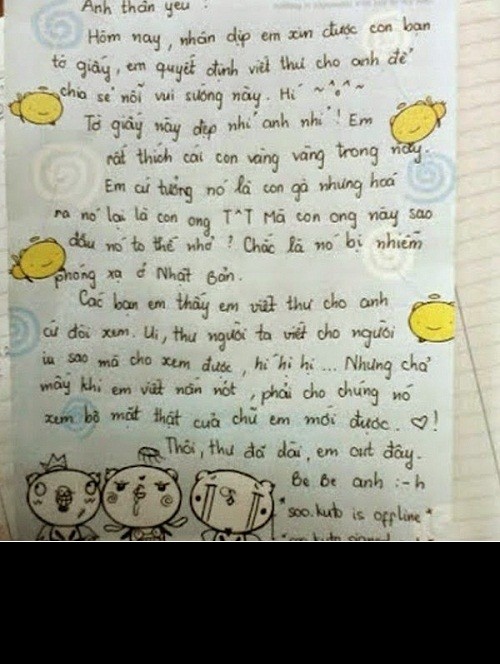 Anh thân yêu !
Hôm nay, nhân dịp em xin được con bạn
tờ giấy, em quyết định viết thư cho anh để
chia sẻ nỗi vui sướng này. Hí ~^o^~
Tờ giấy này đẹp nhỉ anh nhỉ! Em
rất thích cái con vàng vàng trong này.
Em cứ tưởng nó là con gà nhưng hoá
ra nó lại là con ong T^T Mà con ong này sao
đầu nó to thế nhở? Chắc là nó bị nhiễm
phóng xạ ở Nhật Bản.
Các bạn em thấy em viết thư cho anh
cứ đòi xem. Ui, thư người ta viết cho người
iu sao mà cho xem được, hí hị hi... Nhưng chả
mấy khi em viết nắn nót, phải cho chúng nó
xem bộ mặt thật của chữ em mới được. ♡!
Thôi, thư đã dài, em out đây.
Be Be anh :-h
*soo.kute is offline*